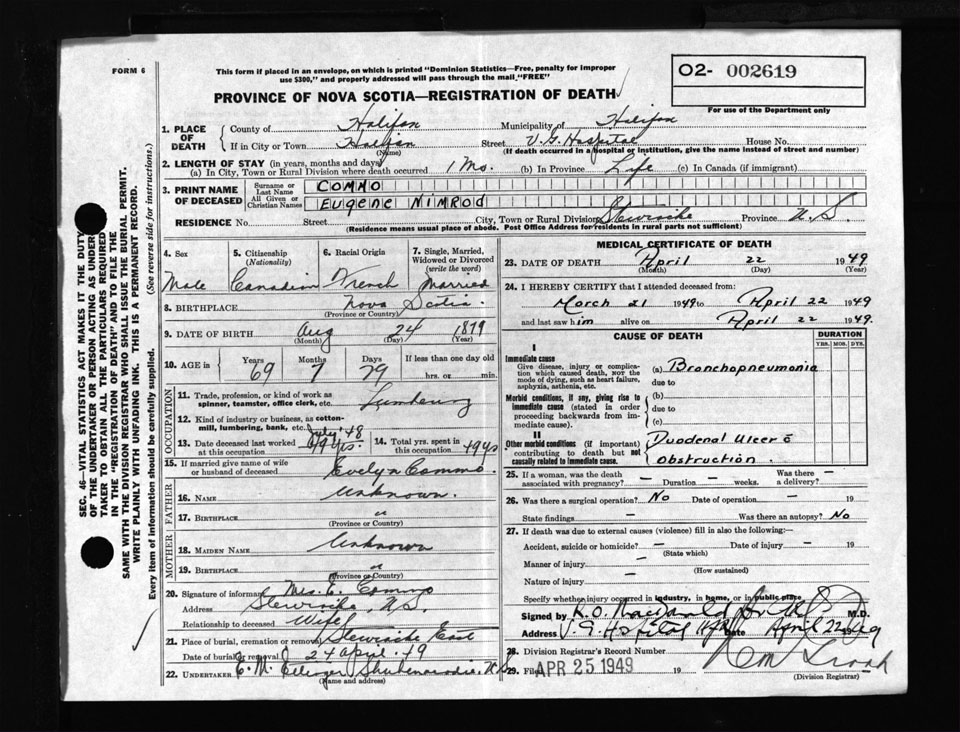 FORM 6
This form if placed in an envelope, on which is printed "Dominion Statistics—Free, penalty for improper
use $300," and properly addressed will pass through the mail "FREE"
PROVINCE OF NOVA SCOTIA—REGISTRATION OF DEATH
O2- 002619
For use of the Department only
1. PLACE OF DEATH
County of Halifax Municipality of Halifax
If in City or Town Halifax Street V. G. Hospital House No.
(Name) (If death occurred in a hospital or institution, give the name instead of street and number)
2. LENGTH OF STAY (in years, months and days)
(a) In City, Town or Rural Division where death occurred 1 Mo. (b) In Province Life (c) In Canada (if immigrant)
3. PRINT NAME OF DECEASED
Surname or Last Name COMMO
All Given or Christian Names EUGENE NIMROD
RESIDENCE No. Street City, Town or Rural Division Stewiacke Province N.S.
(Residence means usual place of abode. Post Office Address for residents in rural parts not sufficient)
4. Sex Male
5. Citizenship (Nationality) Canadian
6. Racial Origin French
7. Single, Married, Widowed or Divorced (write the word) Married
8. BIRTHPLACE Nova Scotia
(Province or Country)
9. DATE OF BIRTH Aug 24 1879
(Month) (Day) (Year)
10. AGE in Years 69 Months 7 Days 29 If less than one day old hrs. or min.
OCCUPATION
11. Trade, profession, or kind of work as
spinner, teamster, office clerk, etc. Lumbering
12. Kind of industry or business, as cotton-
mill, lumbering, bank, etc.
13. Date deceased last worked at this occupation July 48
14. Total yrs. spent in this occupation 49 yrs
15. If married give name of wife
or husband of deceased Evelyn Commo.
FATHER
16. NAME Unknown.
17. BIRTHPLACE "
(Province or Country)
MOTHER
18. MAIDEN NAME Unknown
19. BIRTHPLACE "
(Province or Country)
20. Signature of informant Mrs. E. Commo
Address Stewiacke, N.S.
Relationship to deceased Wife
21. Place of burial, cremation or removal Stewiacke East
Date of burial or removal 24 April 49
22. UNDERTAKER E. M. Ettinger Shubenacadie, N.S.
(Name and address)
MEDICAL CERTIFICATE OF DEATH
23. DATE OF DEATH April 22 1949
(Month) (Day) (Year)
24. I HEREBY CERTIFY that I attended deceased from:
March 21 1949 to April 22 1949
and last saw him alive on April 22 1949.
CAUSE OF DEATH
DURATION
YRS. MOS. DYS.
I
Immediate cause
Give disease, injury or complica-
tion which caused death, NOT the
mode of dying, such as heart failure,
asphyxia, asthenia, etc.
(a) Bronchopneumonia
due to
Morbid conditions, if any, giving rise to
immediate cause (stated in order
proceeding backwards from immediate
cause).
(b)
due to
(c)
II
Other morbid conditions (if important)
contributing to death but not
causally related to immediate cause.
Duodenal Ulcer c̄
Obstruction.
25. If a woman, was the death Was there —
associated with pregnancy? — Duration — weeks. a delivery?
26. Was there a surgical operation? No Date of operation — 19
State findings — Was there an autopsy? No
27. If death was due to external causes (violence) fill in also the following:—
Accident, suicide or homicide? — Date of injury — 19
(State which)
Manner of injury —
(How sustained)
Nature of injury —
Specify whether injury occurred in industry, in home, or in public place
Signed by K. O. MacDonald M.D.
Address V. G. Hospital Hfx Date April 22 1949
28. Division Registrar's Record Number
29. Filed APR 25 1949 19
(Division Registrar)
SEC. 46—VITAL STATISTICS ACT MAKES IT THE DUTY
OF THE UNDERTAKER OR PERSON ACTING AS UNDER-
TAKER TO OBTAIN ALL THE PARTICULARS REQUIRED
IN THE "REGISTRATION OF DEATH" AND TO FILE THE
SAME WITH THE DIVISION REGISTRAR WHO SHALL ISSUE THE BURIAL PERMIT.
WRITE PLAINLY WITH UNFADING INK. THIS IS A PERMANENT RECORD.
Every item of information should be carefully supplied. (See reverse side for instructions.)